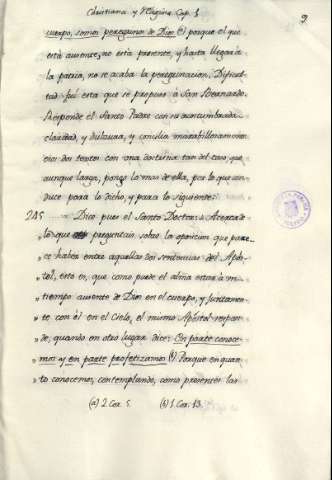 Christiana y Magina Cap. 1
9
cuerpo, somos peregrinos de Dios (a) porque el que
está ausente, no está presente, y hasta llegar a
la patria, no se acaba la peregrinacion. Dificul-
tad fué esta que se propuso a San Bernardo.
Responde el Santo Padre con su acostumbrada
claridad, y dulzura, y concilia maravillosamente
esos dos textos con una doctrina tan del caso, que
aunque larga, pongo la mas de ella, por lo que con-
duce para lo dicho, y para lo siguiente.
245 Dice pues el Santo Doctor: Acerca de
" lo que preguntais sobre la oposicion que pare-
" ce haber entre aquellas dos sentencias del Apos-
" tol, esto es, que como puede el alma estar a un
" tiempo ausente de Dios en el cuerpo, y juntamen-
" te con él en el Cielo, el mismo Apóstol respon-
" de, quando en otro lugar dice: En parte conoce-
" mos y en parte profetizamos (b) Porque en quan-
" to conocemos, contemplando, como presentes las
(a) 2. Cor. 5. (b) 1. Cor. 13.